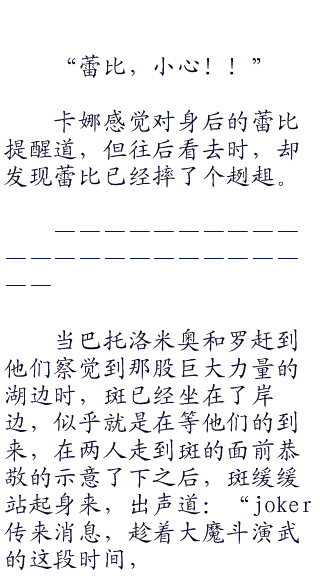 “蕾比，小心！！”
卡娜感觉对身后的蕾比
提醒道，但往后看去时，却
发现蕾比已经摔了个趔趄。
－－－－－－－－－－
－－－－－－－－－－－－
－－
当巴托洛米奥和罗赶到
他们察觉到那股巨大力量的
湖边时，斑已经坐在了岸
边，似乎就是在等他们的到
来，在两人走到斑的面前恭
敬的示意了下之后，斑缓缓
站起身来，出声道：“joker
传来消息，趁着大魔斗演武
的这段时间，